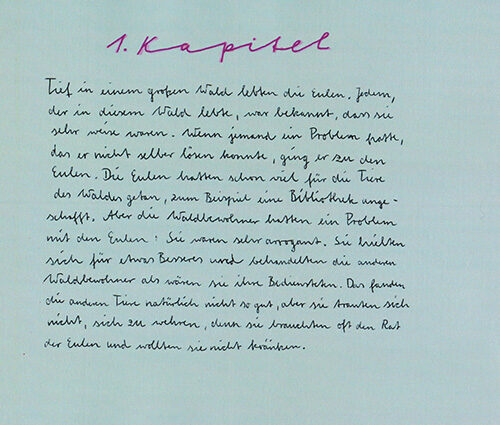 1. Kapitel
Tief in einem großen Wald lebten die Eulen. Jedem,
der in diesem Wald lebte, war bekannt, dass sie
sehr weise waren. Wenn jemand ein Problem hatte,
das er nicht selber lösen konnte, ging er zu den
Eulen. Die Eulen hatten schon viel für die Tiere
des Waldes getan, zum Beispiel eine Bibliothek ange-
schafft. Aber die Waldbewohner hatten ein Problem
mit den Eulen: Sie waren sehr arrogant. Sie hielten
sich für etwas Besseres und behandelten die anderen
Waldbewohner als wären sie ihre Bediensteten. Das fanden
die anderen Tiere natürlich nicht so gut, aber sie trauten sich
nicht, sich zu wehren, denn sie brauchten oft den Rat
der Eulen und wollten sie nicht kränken.